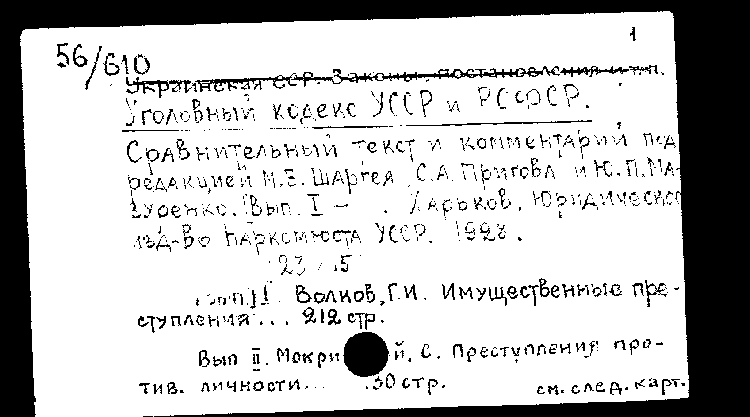 1
56/610
Украинская ССР. Законы, постановления и т.п.
Уголовный кодекс УССР и РСФСР.
Сравнительный текст и комментарий под
редакцией М.Е. Шаргея, С.А. Пригова и Ю.П. Ма-
зуренко. Вып. I – . Харьков, Юридическое
изд-во Наркомюста УССР. 1928.
23 15
I. Волков, Г.И. Имущественные пре-
ступления... 212 стр.
Вып II. Мокри й, С. Преступления про-
тив. личности... 30 стр.
см. след. карт.